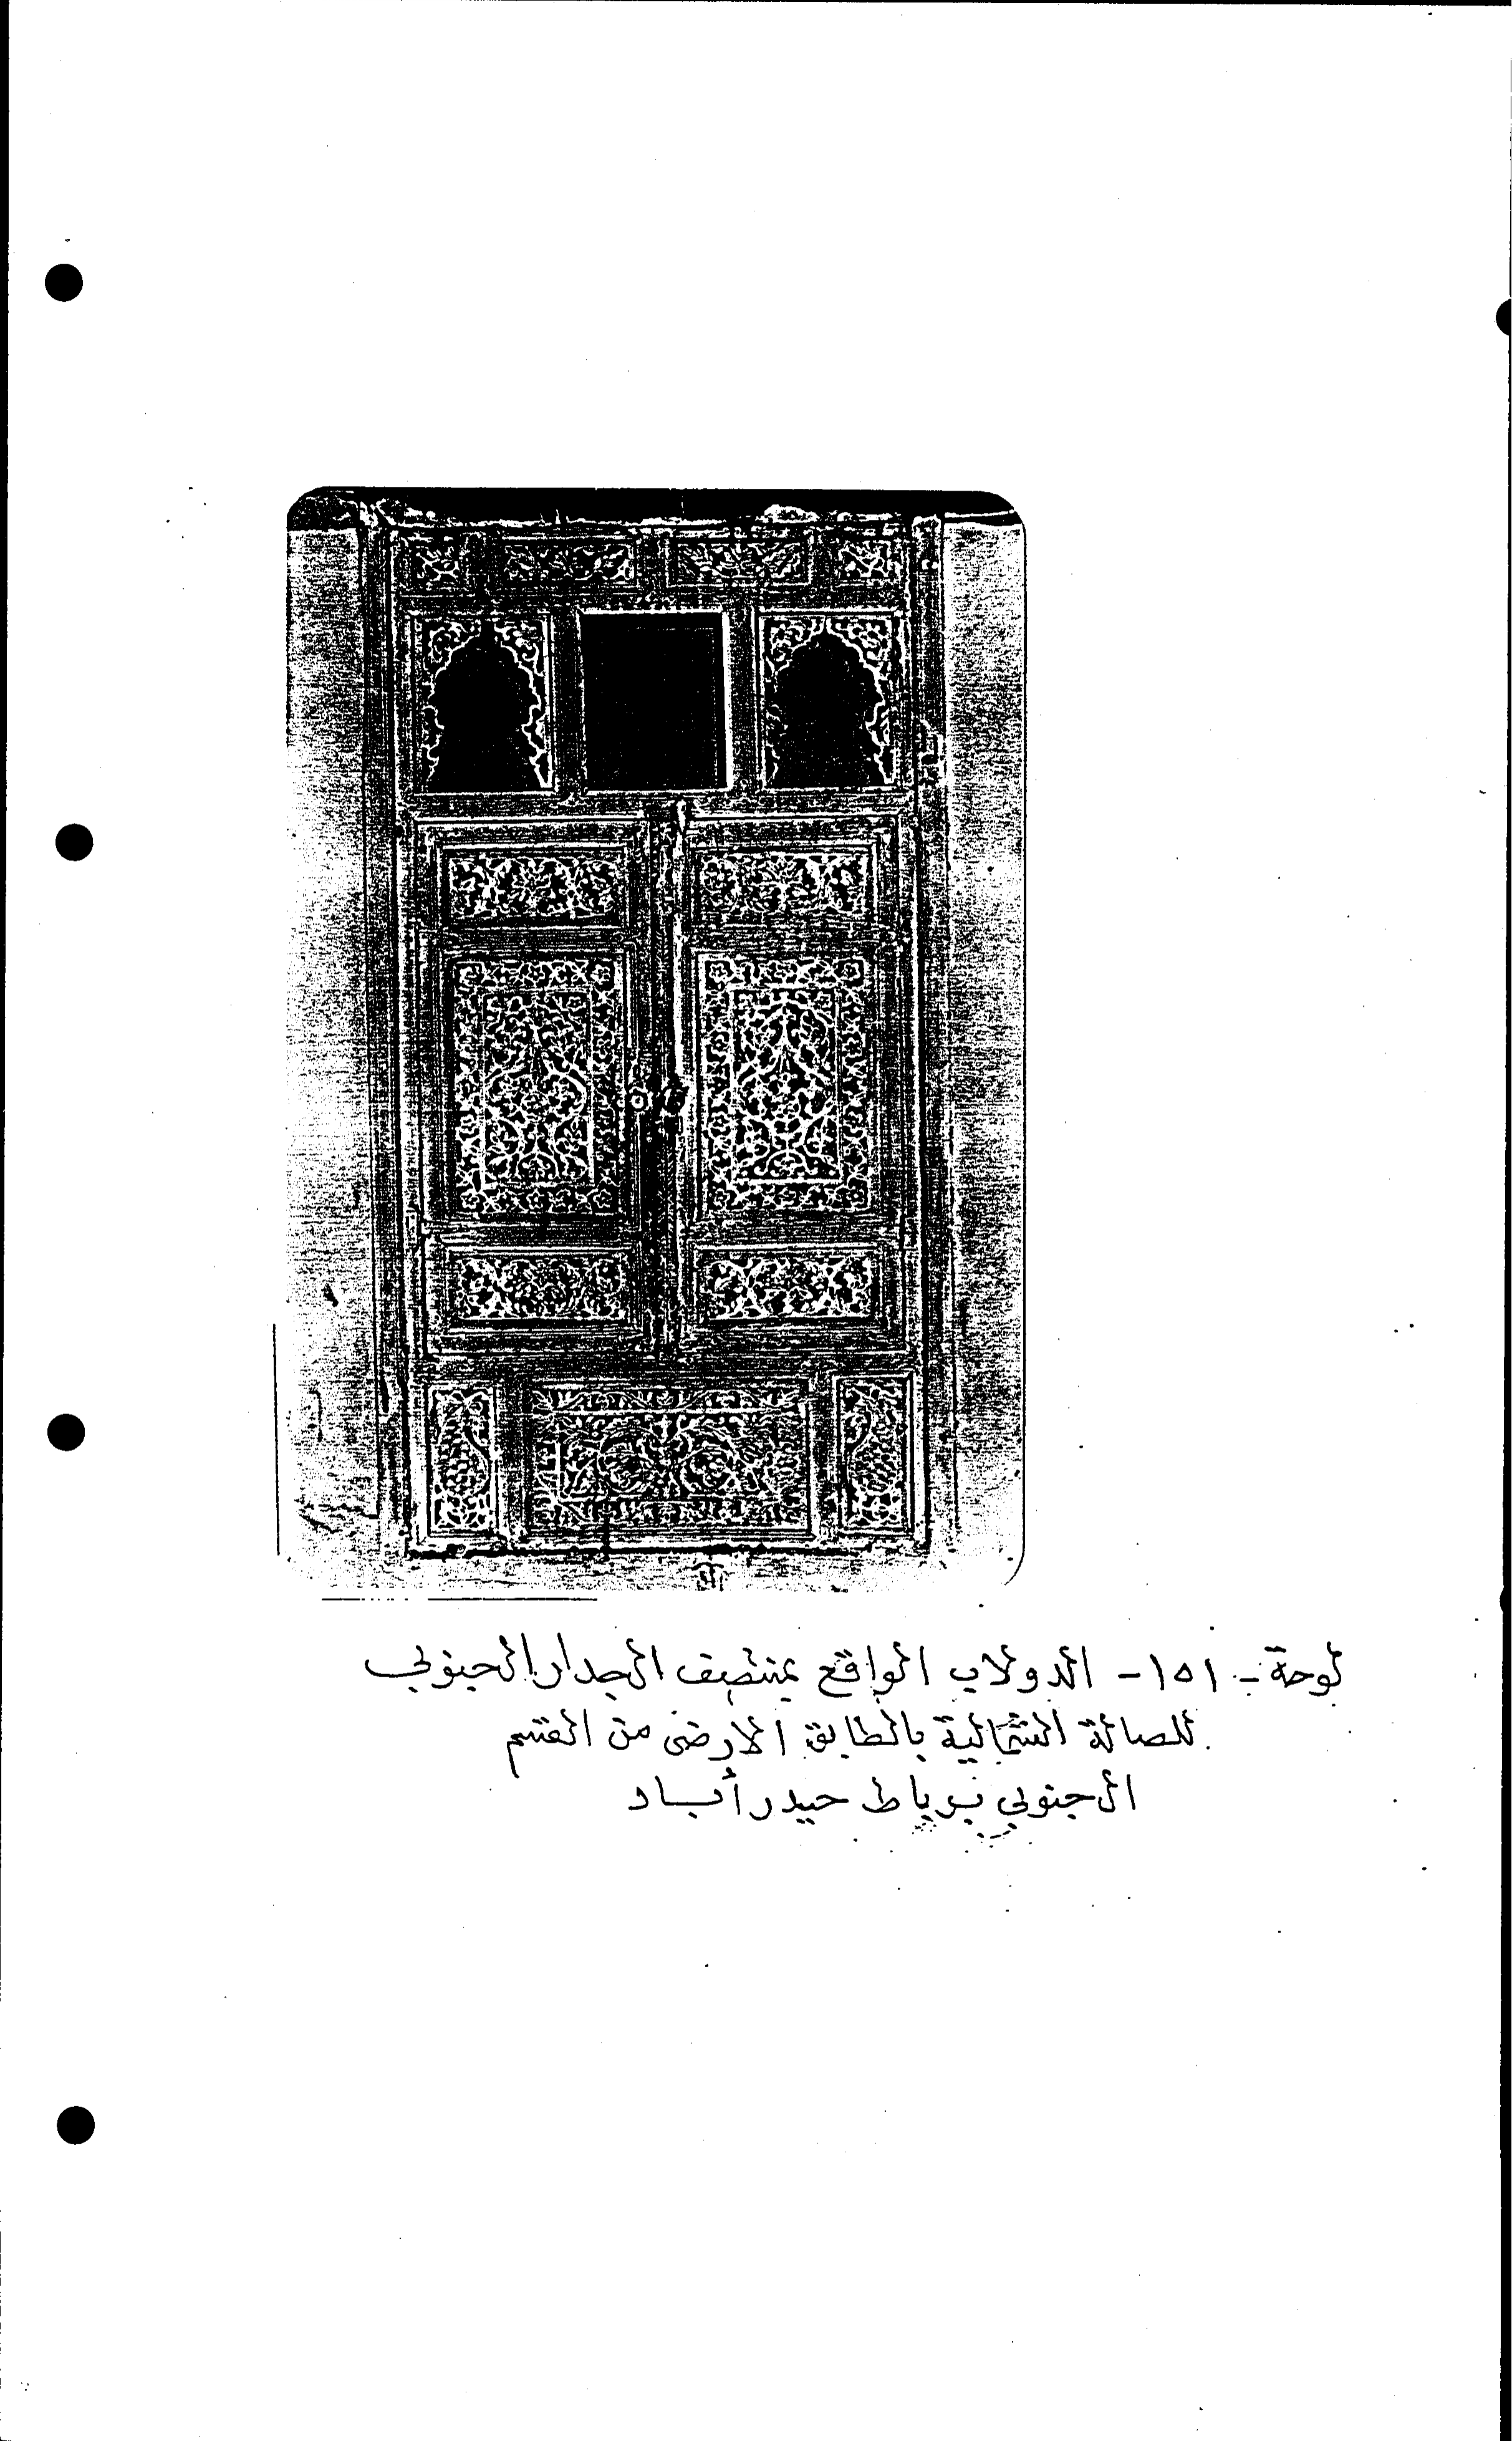 لوحة - ١٥١ - الدولاب الواقع بمنتصف الجدار الجنوبي
للصالة الشمالية بالطابق الارضى من القسم
الجنوبي برباط حيدر أباد